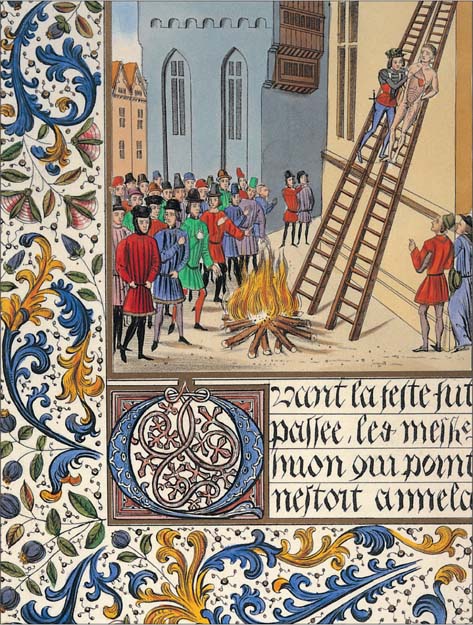 Quant la feste fut
passee, les messe
huon qui point
nestoit